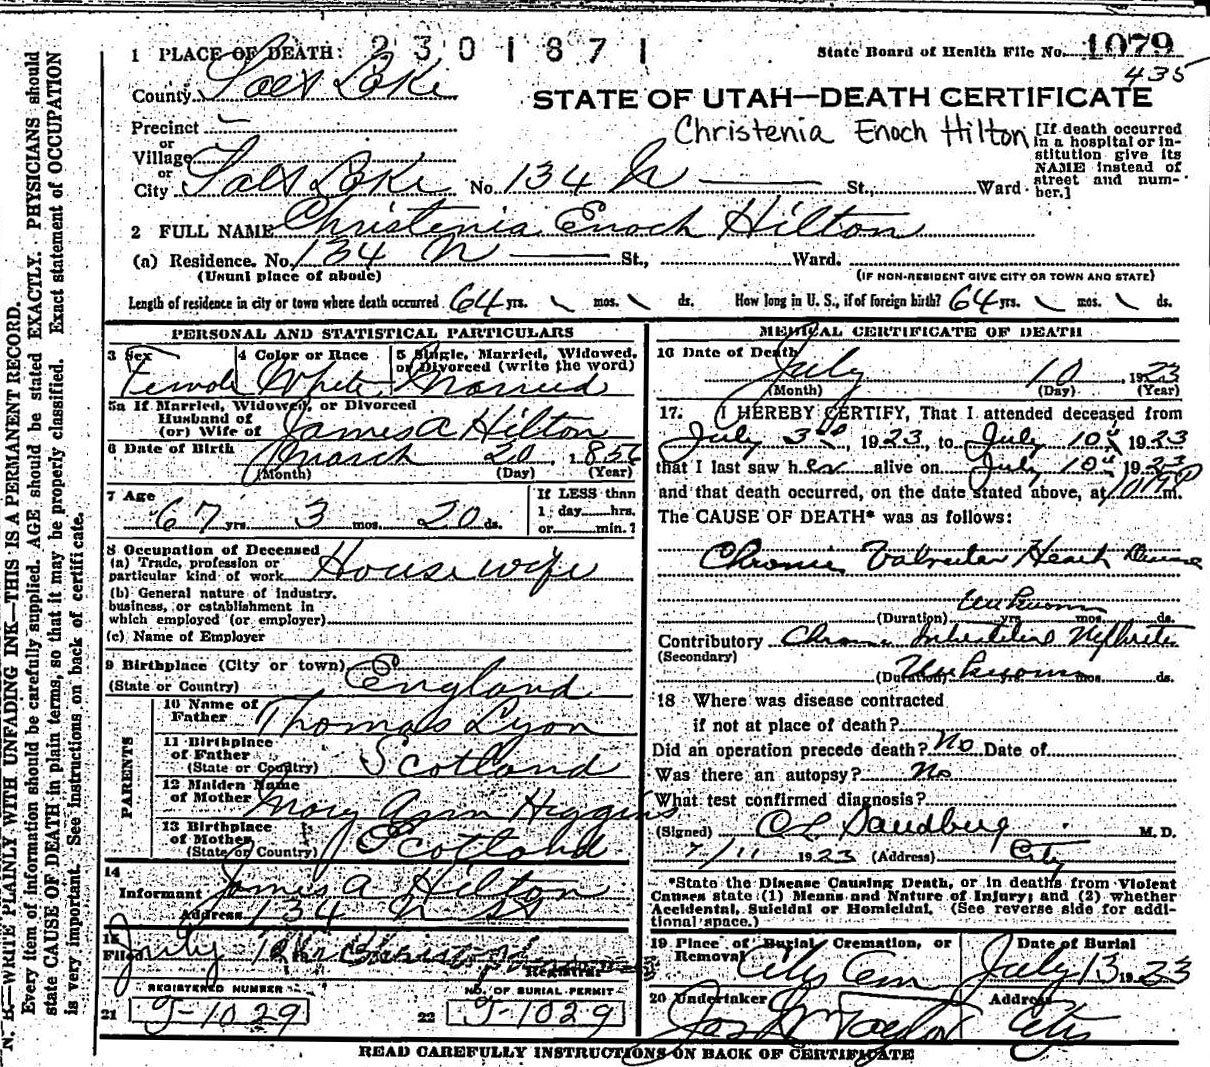 1 PLACE OF DEATH: 2301871
State Board of Health File No. 1079
435
County Salt Lake
STATE OF UTAH—DEATH CERTIFICATE
Precinct —
Christenia Enoch Hilton
[If death occurred in a hospital or institution give its NAME instead of street and number.]
or
Village
or
City Salt Lake No. 134 N — St., Ward
2 FULL NAME Christenia Enoch Hilton
(a) Residence. No. 134 N — St., Ward.
(Usual place of abode)
(IF NON-RESIDENT GIVE CITY OR TOWN AND STATE)
Length of residence in city or town where death occurred 64 yrs. \ mos. \ ds. How long in U. S., if of foreign birth? 64 yrs. \ mos. \ ds.
PERSONAL AND STATISTICAL PARTICULARS
3 Sex Female
4 Color or Race White
5 Single, Married, Widowed, or Divorced (write the word) Married
5a If Married, Widowed, or Divorced
Husband of
(or) Wife of James A Hilton
6 Date of Birth March 20, 1856
(Month) (Day) (Year)
7 Age 67 yrs. 3 mos. 20 ds.
If LESS than
1 day hrs.
or min.?
8 Occupation of Deceased
(a) Trade, profession or
particular kind of work House wife
(b) General nature of industry,
business, or establishment in
which employed (or employer)
(c) Name of Employer
9 Birthplace (City or town)
(State or Country) England
PARENTS
10 Name of
Father Thomas Lyon
11 Birthplace
of Father
(State or Country) Scotland
12 Maiden Name
of Mother Mary Ann Higgins
13 Birthplace
of Mother
(State or Country) Scotland
14
Informant James A Hilton
Address 134 N St
15
Filed July
Registrar
REGISTERED NUMBER
21 G-1029
NO. OF BURIAL PERMIT
22 G-1029
MEDICAL CERTIFICATE OF DEATH
16 Date of Death July 10, 1923
(Month) (Day) (Year)
17. I HEREBY CERTIFY, That I attended deceased from
July 3rd, 1923, to July 10th, 1923
that I last saw her alive on July 10th, 1923
and that death occurred, on the date stated above, at m.
The CAUSE OF DEATH* was as follows:
Chronic Valvular Heart Disease
Unknown
(Duration) yrs. mos. ds.
Contributory Chronic Interstitial Nephritis
(Secondary)
(Duration) Unknown mos. ds.
18 Where was disease contracted
if not at place of death?
Did an operation precede death? No Date of
Was there an autopsy? No
What test confirmed diagnosis?
(Signed) O L Sandberg M. D.
7/11 1923 (Address) City
*State the Disease Causing Death, or in deaths from Violent
Causes state (1) Means and Nature of Injury; and (2) whether
Accidental, Suicidal or Homicidal. (See reverse side for additional space.)
19 Place of Burial, Cremation, or
Removal City Cem
Date of Burial
July 13 1923
20 Undertaker
Taylor
Address
City
READ CAREFULLY INSTRUCTIONS ON BACK OF CERTIFICATE
N. B.—WRITE PLAINLY WITH UNFADING INK—THIS IS A PERMANENT RECORD.
Every item of information should be carefully supplied. AGE should be stated EXACTLY. PHYSICIANS should
state CAUSE OF DEATH in plain terms, so that it may be properly classified. Exact statement of OCCUPATION
is very important. See instructions on back of certificate.